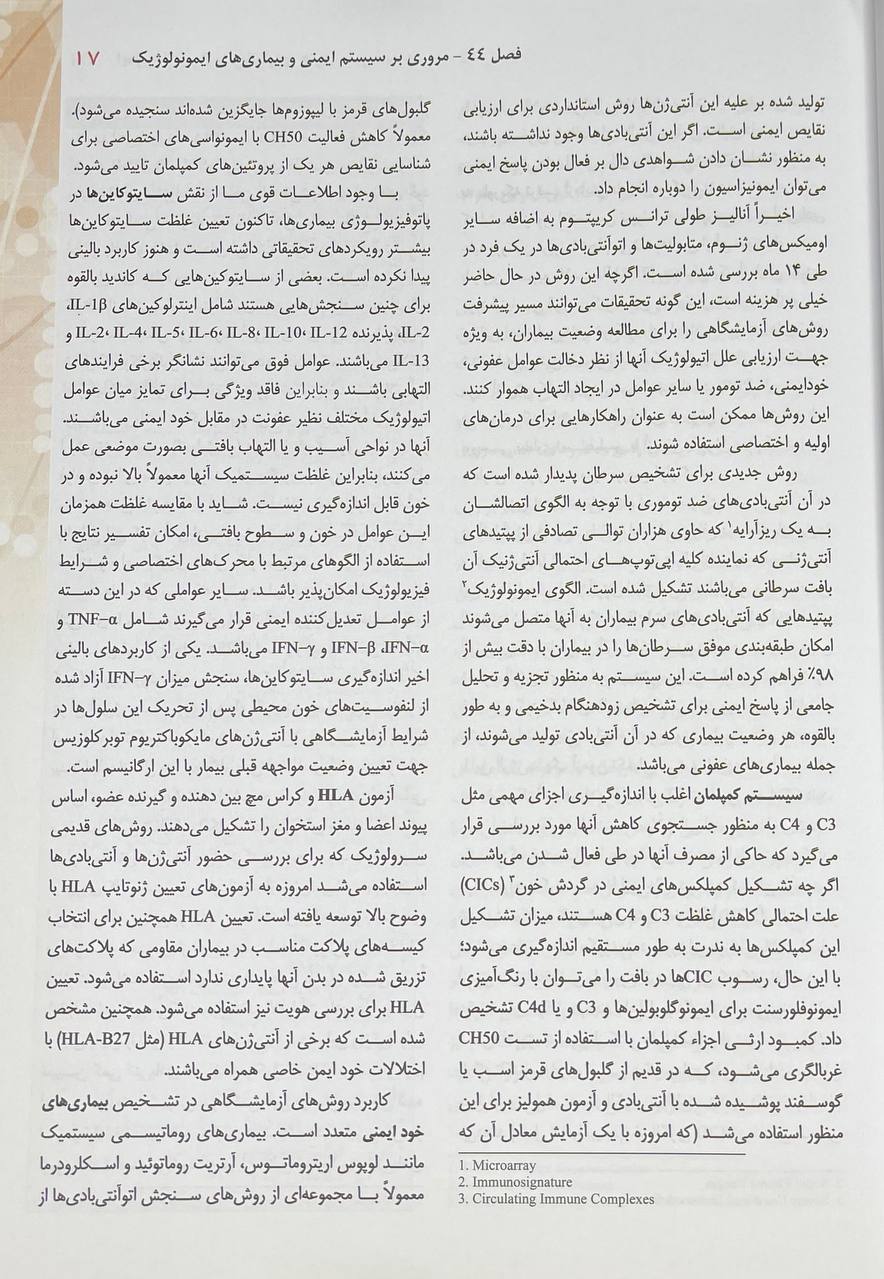 فصل ٤٤ - مروری بر سیستم ایمنی و بیماری‌های ایمونولوژیک ۱۷
تولید شده بر علیه این آنتی‌ژن‌ها روش استانداردی برای ارزیابی
نقایص ایمنی است. اگر این آنتی‌بادی‌ها وجود نداشته باشند،
به منظور نشان دادن شواهدی دال بر فعال بودن پاسخ ایمنی
می‌توان ایمونیزاسیون را دوباره انجام داد.
اخیراً آنالیز طولی ترانس کریپتوم به اضافه سایر
اومیکس‌های ژنوم، متابولیت‌ها و اتوآنتی‌بادی‌ها در یک فرد در
طی ۱۴ ماه بررسی شده است. اگرچه این روش در حال حاضر
خیلی پر هزینه است، این گونه تحقیقات می‌توانند مسیر پیشرفت
روش‌های آزمایشگاهی را برای مطالعه وضعیت بیماران، به ویژه
جهت ارزیابی علل اتیولوژیک آنها از نظر دخالت عوامل عفونی،
خودایمنی، ضد تومور یا سایر عوامل در ایجاد التهاب هموار کنند.
این روش‌ها ممکن است به عنوان راهکارهایی برای درمان‌های
اولیه و اختصاصی استفاده شوند.
روش جدیدی برای تشخیص سرطان پدیدار شده است که
در آن آنتی‌بادی‌های ضد توموری با توجه به الگوی اتصالشان
به یک ریزآرایه۱ که حاوی هزاران توالی تصادفی از پپتیدهای
آنتی‌ژنی که نماینده کلیه اپی‌توپ‌های احتمالی آنتی‌ژنیک آن
بافت سرطانی می‌باشند تشکیل شده است. الگوی ایمونولوژیک۲
پپتیدهایی که آنتی‌بادی‌های سرم بیماران به آنها متصل می‌شوند
امکان طبقه‌بندی موفق سرطان‌ها را در بیماران با دقت بیش از
۹۸٪ فراهم کرده است. این سیستم به منظور تجزیه و تحلیل
جامعی از پاسخ ایمنی برای تشخیص زودهنگام بدخیمی و به طور
بالقوه، هر وضعیت بیماری که در آن آنتی‌بادی تولید می‌شوند، از
جمله بیماری‌های عفونی می‌باشد.
سیستم کمپلمان اغلب با اندازه‌گیری اجزای مهمی مثل
C3 و C4 به منظور جستجوی کاهش آنها مورد بررسی قرار
می‌گیرد که حاکی از مصرف آنها در طی فعال شدن می‌باشد.
اگر چه تشکیل کمپلکس‌های ایمنی در گردش خون۳ (CICs)
علت احتمالی کاهش غلظت C3 و C4 هستند، میزان تشکیل
این کمپلکس‌ها به ندرت به طور مستقیم اندازه‌گیری می‌شود؛
با این حال، رسوب CICها در بافت را می‌توان با رنگ‌آمیزی
ایمونوفلورسنت برای ایمونوگلوبولین‌ها و C3 و یا C4d تشخیص
داد. کمبود ارثی اجزاء کمپلمان با استفاده از تست CH50
غربالگری می‌شود، که در قدیم از گلبول‌های قرمز اسب یا
گوسفند پوشیده شده با آنتی‌بادی و آزمون همولیز برای این
منظور استفاده می‌شد (که امروزه با یک آزمایش معادل آن که
1. Microarray
2. Immunosignature
3. Circulating Immune Complexes
گلبول‌های قرمز با لیپوزوم‌ها جایگزین شده‌اند سنجیده می‌شود).
معمولاً کاهش فعالیت CH50 با ایمونواسی‌های اختصاصی برای
شناسایی نقایص هر یک از پروتئین‌های کمپلمان تایید می‌شود.
با وجود اطلاعات قوی ما از نقش سایتوکاین‌ها در
پاتوفیزیولوژی بیماری‌ها، تاکنون تعیین غلظت سایتوکاین‌ها
بیشتر رویکردهای تحقیقاتی داشته است و هنوز کاربرد بالینی
پیدا نکرده است. بعضی از سایتوکین‌هایی که کاندید بالقوه
برای چنین سنجش‌هایی هستند شامل اینترلوکین‌های IL-1β،
IL-2، پذیرنده IL-2، IL-4، IL-5، IL-6، IL-8، IL-10، IL-12 و
IL-13 می‌باشند. عوامل فوق می‌توانند نشانگر برخی فرایندهای
التهابی باشند و بنابراین فاقد ویژگی برای تمایز میان عوامل
اتیولوژیک مختلف نظیر عفونت در مقابل خود ایمنی می‌باشند.
آنها در نواحی آسیب و یا التهاب بافتی بصورت موضعی عمل
می‌کنند، بنابراین غلظت سیستمیک آنها معمولاً بالا نبوده و در
خون قابل اندازه‌گیری نیست. شاید با مقایسه غلظت همزمان
این عوامل در خون و سطوح بافتی، امکان تفسیر نتایج با
استفاده از الگوهای مرتبط با محرک‌های اختصاصی و شرایط
فیزیولوژیک امکان‌پذیر باشد. سایر عواملی که در این دسته
از عوامل تعدیل‌کننده ایمنی قرار می‌گیرند شامل TNF-α و
IFN-α، IFN-β و IFN-γ می‌باشد. یکی از کاربردهای بالینی
اخیر اندازه‌گیری سایتوکاین‌ها، سنجش میزان IFN-γ آزاد شده
از لنفوسیت‌های خون محیطی پس از تحریک این سلول‌ها در
شرایط آزمایشگاهی با آنتی‌ژن‌های مایکوباکتریوم توبرکلوزیس
جهت تعیین وضعیت مواجهه قبلی بیمار با این ارگانیسم است.
آزمون HLA و کراس مچ بین دهنده و گیرنده عضو، اساس
پیوند اعضا و مغز استخوان را تشکیل می‌دهند. روش‌های قدیمی
سرولوژیک که برای بررسی حضور آنتی‌ژن‌ها و آنتی‌بادی‌ها
استفاده می‌شد امروزه به آزمون‌های تعیین ژنوتایپ HLA با
وضوح بالا توسعه یافته است. تعیین HLA همچنین برای انتخاب
کیسه‌های پلاکت مناسب در بیماران مقاومی که پلاکت‌های
تزریق شده در بدن آنها پایداری ندارد استفاده می‌شود. تعیین
HLA برای بررسی هویت نیز استفاده می‌شود. همچنین مشخص
شده است که برخی از آنتی‌ژن‌های HLA (مثل HLA-B27) با
اختلالات خود ایمن خاصی همراه می‌باشند.
کاربرد روش‌های آزمایشگاهی در تشخیص بیماری‌های
خود ایمنی متعدد است. بیماری‌های روماتیسمی سیستمیک
مانند لوپوس اریتروماتوس، آرتریت روماتوئید و اسکلرودرما
معمولاً با مجموعه‌ای از روش‌های سنجش اتوآنتی‌بادی‌ها از